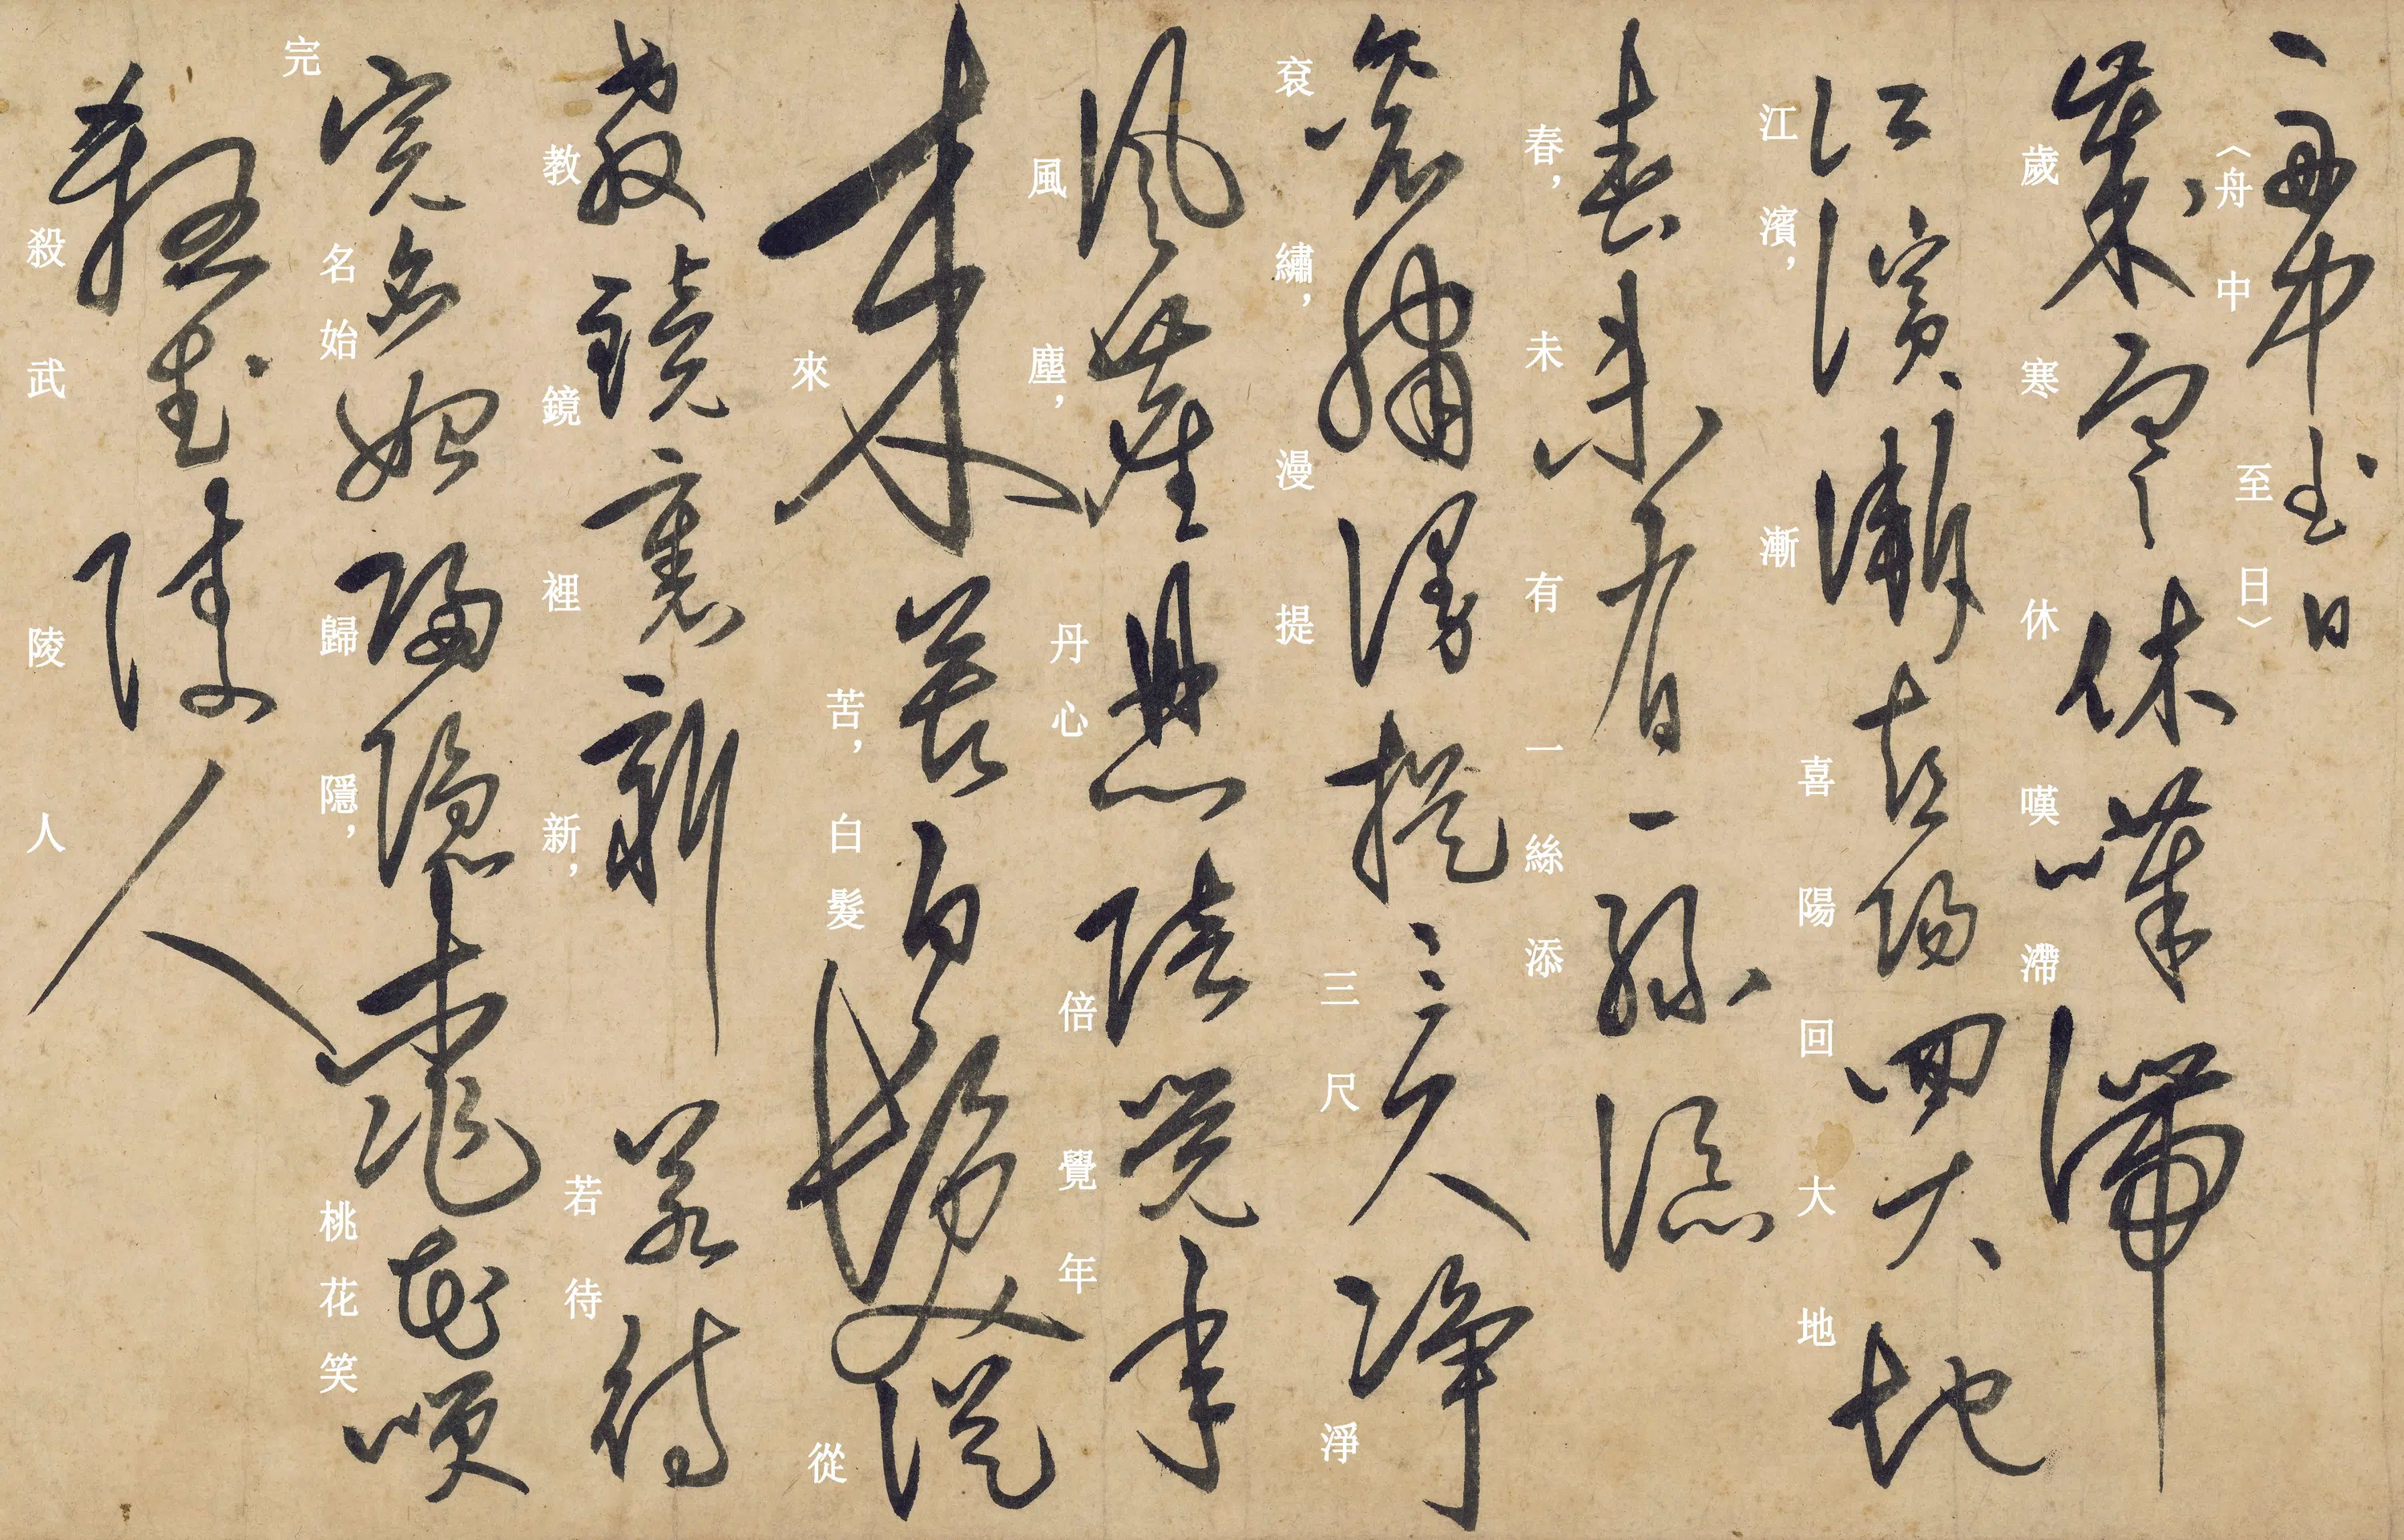 〈舟中至日〉
歲寒休嘆滯
江濱，漸喜陽回大地
春，未有一絲添
袞繡，漫提三尺淨
風塵，丹心倍覺年
來苦，白髮從
教鏡裡新，若待
完名始歸隱，桃花笑
殺武陵人